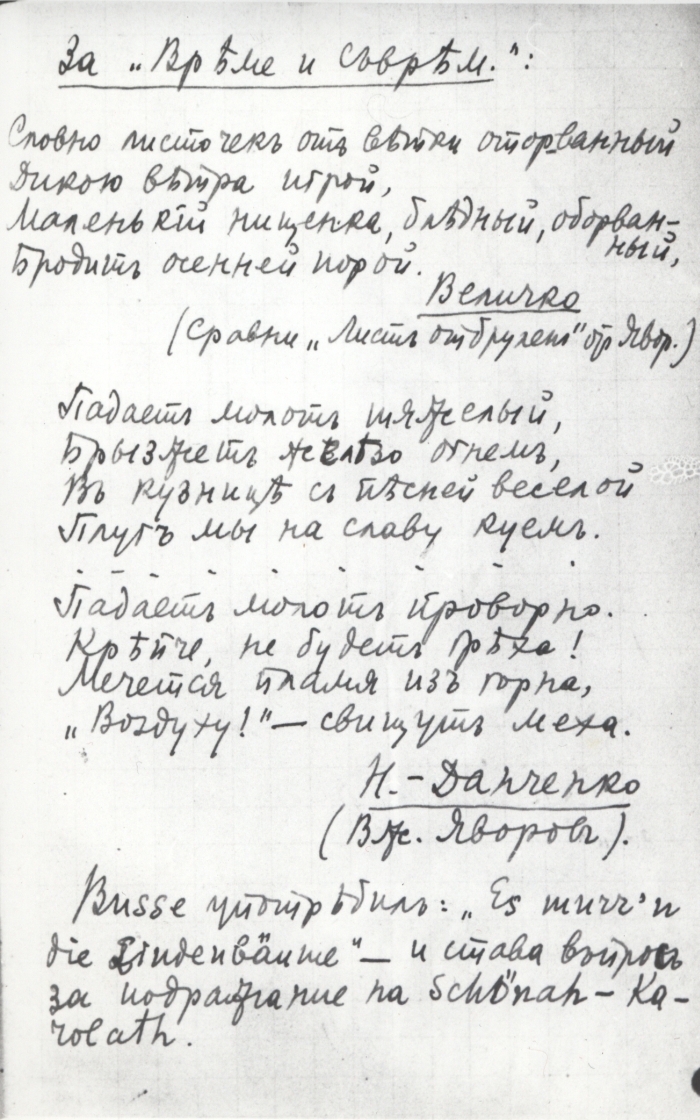 За „Врѣме и соврѣм.":
Словно листочекъ отъ вѣтки оторванный
Дикою вѣтра игрой,
Маленькій нищенка, блѣдный, оборван-
ный,
Бродитъ осенней порой.
Величко
(Сравни „Листъ отбруленъ" отъ Явор.)
Падаетъ молотъ тяжелый,
Брызжетъ желѣзо огнемъ,
Въ кузницѣ съ пѣсней веселой
Плугъ мы на славу куемъ.
- - - - - - - - -
Падаетъ молотъ проворно.
Крѣпче, не будетъ грѣха!
Мечется пламя изъ горна,
„Воздуху!" — свищутъ меха.
Н.-Данченко
(Вж. Яворовъ).
Busse употрѣбилъ: „Es
die Lindenbäume" — и става въпросъ
за подражание на Schönah - Ka-
rolath.